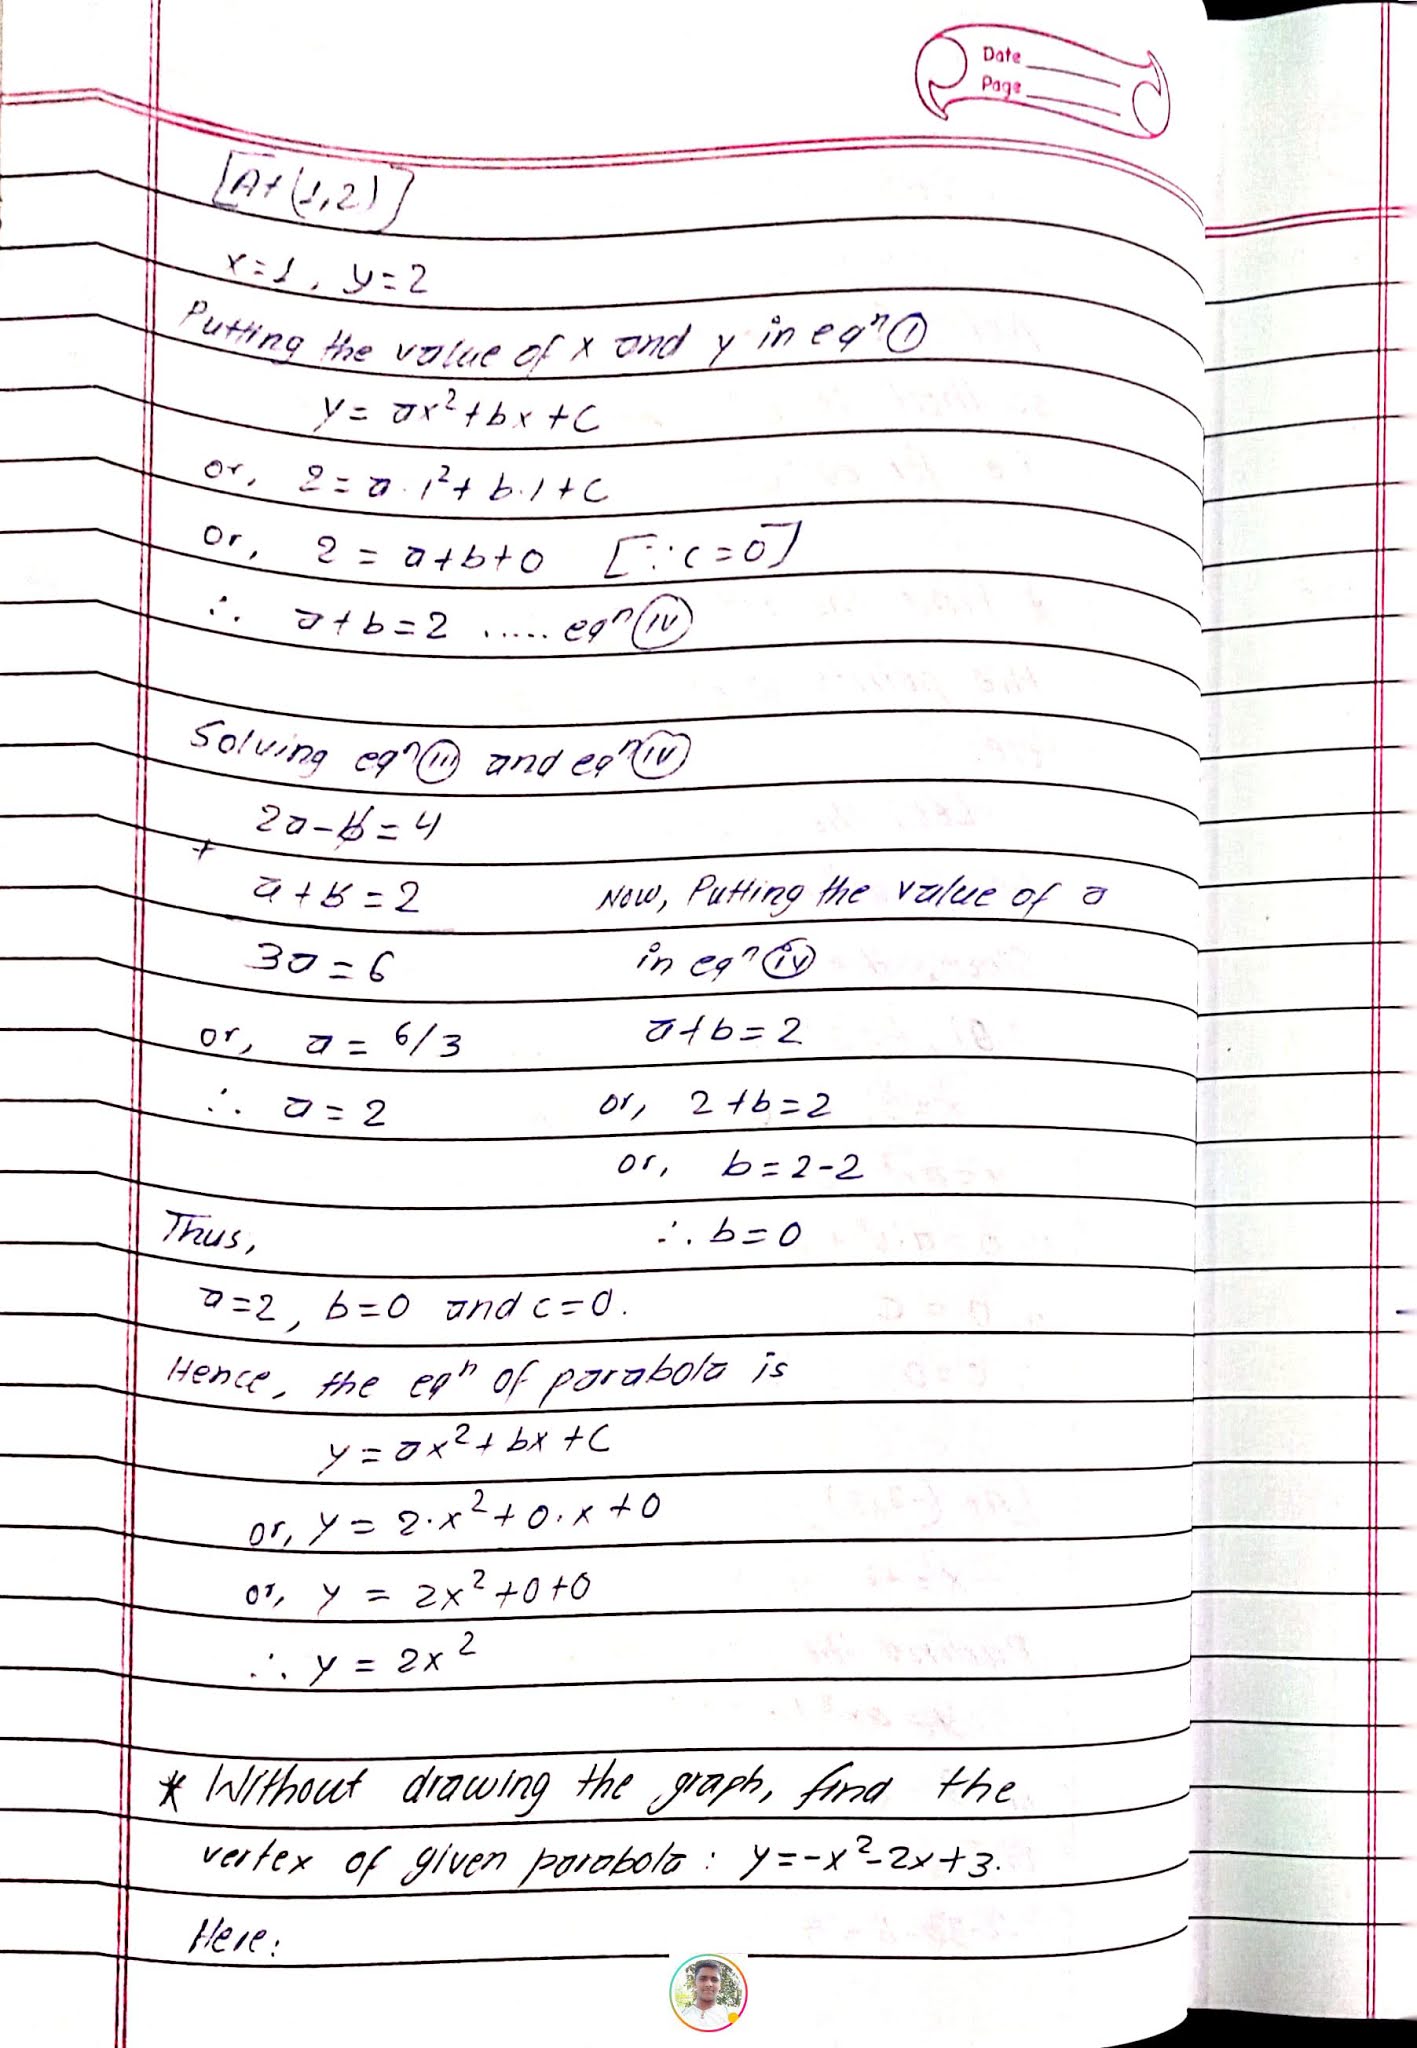 Date
Page
[At (1,2)]
x=1, y=2
Putting the value of x and y in eqⁿ (i)
y = ax²+bx+c
or, 2 = a·1²+ b·1+c
or, 2 = a+b+0 [∵c=0]
∴ a+b=2 ..... eqⁿ (iv)
Solving eqⁿ (iii) and eqⁿ (iv)
2a-b=4
+
a+b=2 Now, Putting the value of a
3a=6 in eqⁿ (iv)
or, a = 6/3 a+b=2
∴ a=2 or, 2+b=2
or, b=2-2
Thus, ∴ b=0
a=2, b=0 and c=0.
Hence, the eqⁿ of parabola is
y = ax²+bx+c
or, y = 2·x²+0·x+0
or, y = 2x²+0+0
∴ y = 2x²
* Without drawing the graph, find the
vertex of given parabola: y=-x²-2x+3.
Here: